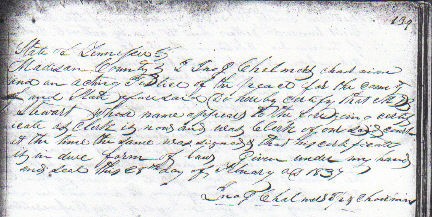 139
State of Tennessee
Madison County I Jno J Chalmers chairman
and an acting Justice of the peace for the County
and State aforesaid do hereby certify that
Stewart whose name appears to the foregoing certif
icate as Clerk is now and was Clerk of our said court
at the time the same was signed & that his certificate
is in due form of law Given under my hand
and seal this 28th day of 1837
Jno J Chalmers Chairman